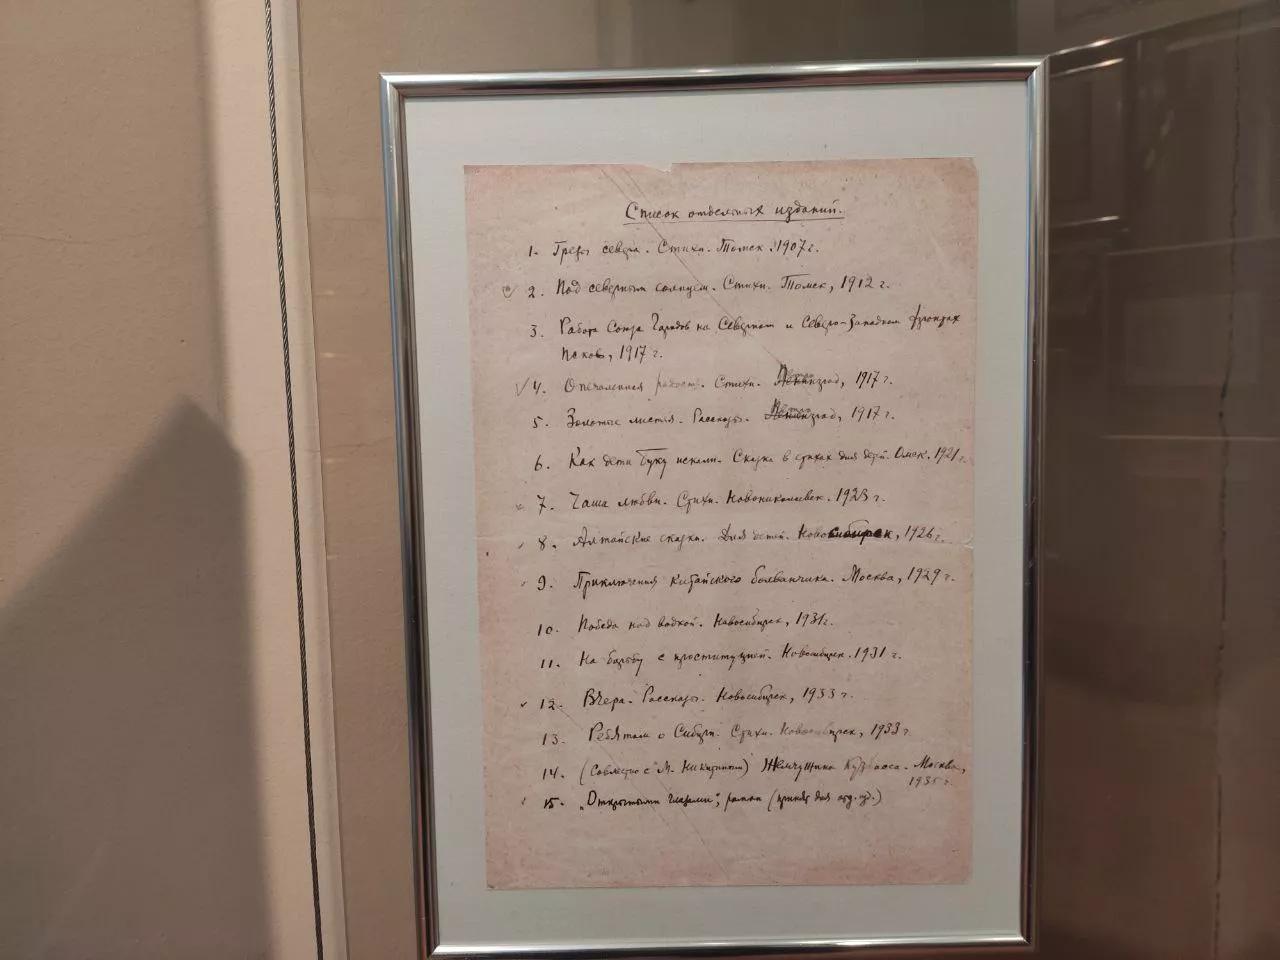 Список отдельных изданий.
1. Грезы севера. Стихи. Томск. 1907 г.
2. Под северным солнцем. Стихи. Томск, 1912 г.
3. Работа Союза Городов на Северном и Северо-Западном фронтах
Псков, 1917 г.
4. Опечаленная радость. Стихи. Петроград, 1917 г.
5. Золотые листья. Рассказы. Петроград, 1917 г.
6. Как дети Буку искали. Сказка в стихах для детей. Омск. 1921 г.
7. Чаша любви. Стихи. Новониколаевск. 1923 г.
8. Алтайские сказки. Для детей. Новосибирск, 1926 г.
9. Приключения китайского болванчика. Москва, 1929 г.
10. Победа над водкой. Новосибирск, 1931 г.
11. На борьбу с проституцией. Новосибирск. 1931 г.
12. Вчера. Рассказы. Новосибирск, 1933 г.
13. Ребятам о Сибири. Стихи. Новосибирск, 1933 г.
14. (Совместно с М. Никитиным) Жемчужина Кузбасса. Москва,
1935 г.
15. „Открытыми глазами", роман (принят для отд. изд.)